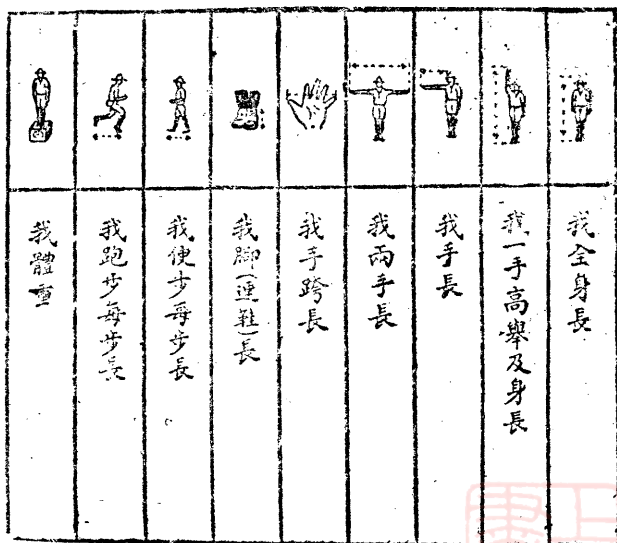 我全身長
我一手高舉及身長
我手長
我兩手長
我手跨長
我脚(連鞋)長
我便步每步長
我跑步每步長
我體重